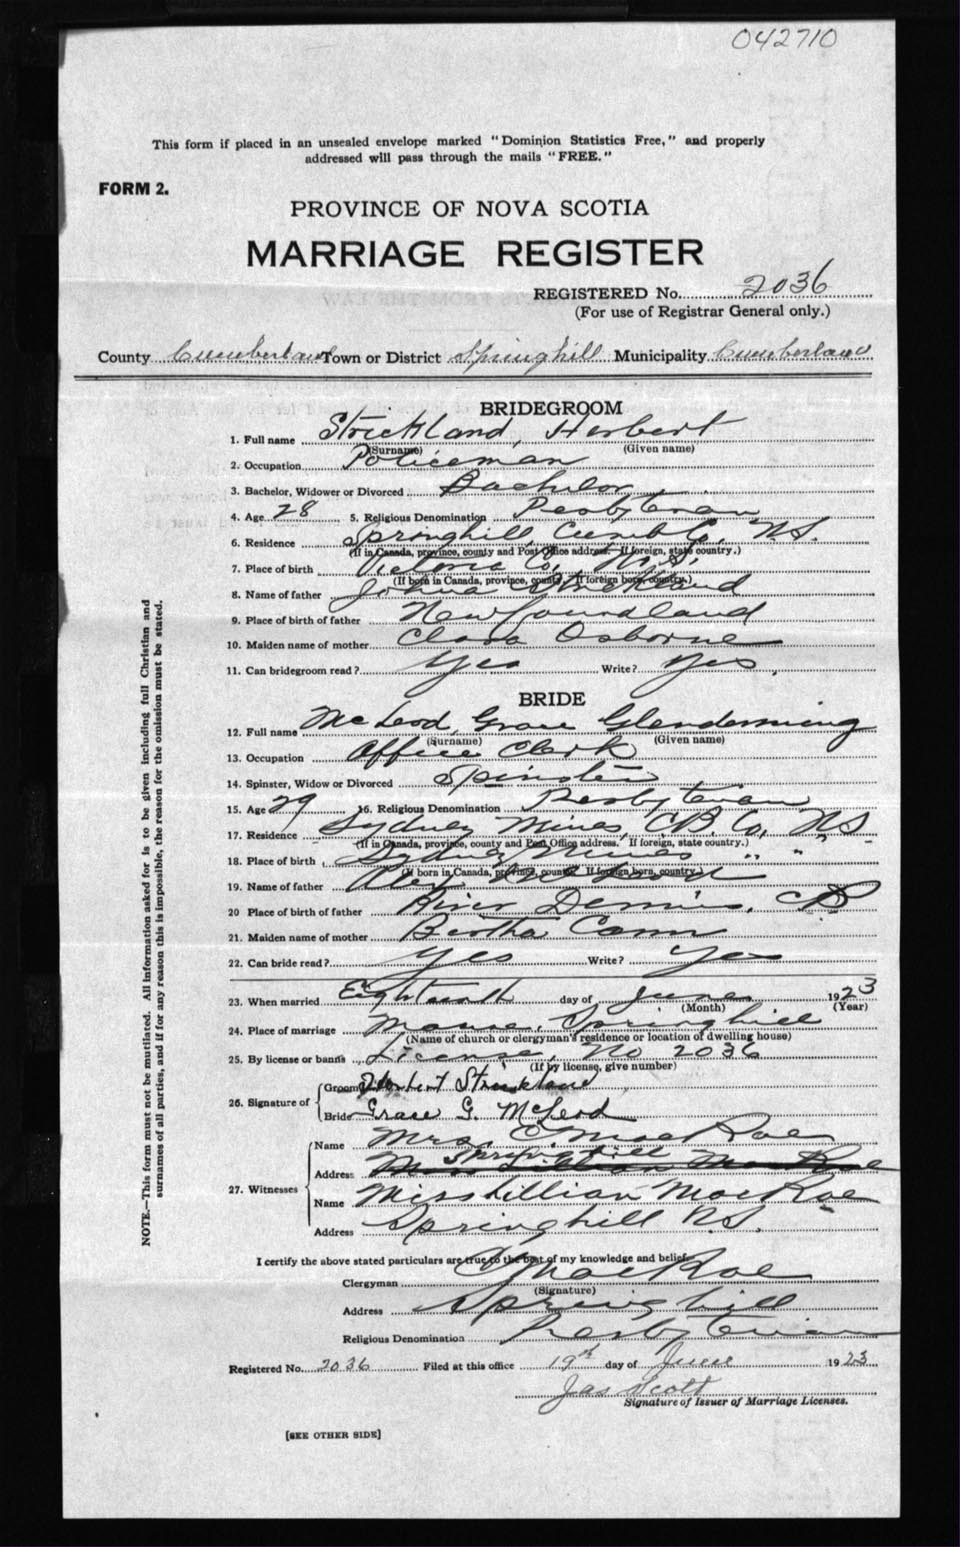 042710
This form if placed in an unsealed envelope marked "Dominion Statistics Free," and properly
addressed will pass through the mails "FREE."
FORM 2.
PROVINCE OF NOVA SCOTIA
MARRIAGE REGISTER
REGISTERED No. 2036
(For use of Registrar General only.)
County Cumberland Town or District Springhill Municipality Cumberland
BRIDEGROOM
1. Full name Strickland, Herbert
(Surname) (Given name)
2. Occupation Policeman
3. Bachelor, Widower or Divorced Bachelor
4. Age 28 5. Religious Denomination Presbyterian
6. Residence Springhill, Cumb Co, N.S.
(If in Canada, province, county and Post Office address. If foreign, state country.)
7. Place of birth Victoria Co, N.S.
(If born in Canada, province, county. If foreign born, country.)
8. Name of father Joshua Strickland
9. Place of birth of father Newfoundland
10. Maiden name of mother Clara Osborne
11. Can bridegroom read? Yes Write? Yes
BRIDE
12. Full name McLeod, Grace Glendenning
(Surname) (Given name)
13. Occupation Office Clerk
14. Spinster, Widow or Divorced Spinster
15. Age 29 16. Religious Denomination Presbyterian
17. Residence Sydney Mines, C.B. Co, N.S
(If in Canada, province, county and Post Office address. If foreign, state country.)
18. Place of birth Sydney Mines " "
(If born in Canada, province, county. If foreign born, country.)
19. Name of father
20 Place of birth of father River Dennis, CB
21. Maiden name of mother Bertha Cann
22. Can bride read? Yes Write? Yes
23. When married Eighteenth day of June 1923
(Month) (Year)
24. Place of marriage Manse, Springhill
(Name of church or clergyman's residence or location of dwelling house)
25. By license or banns License, No 2036
(If by license, give number)
26. Signature of Groom Herbert Strickland
Bride Grace G. McLeod
27. Witnesses Name Mrs. C. MacRae
Address Springhill
Name Miss Lillian MacRae
Address Springhill N.S.
I certify the above stated particulars are true to the best of my knowledge and belief.
Clergyman C MacRae
(Signature)
Address Springhill
Religious Denomination Presbyterian
Registered No. 2036 Filed at this office 19th day of June 1923
Jas Scott
Signature of Issuer of Marriage Licenses.
[SEE OTHER SIDE]
NOTE.—This form must not be mutilated. All information asked for is to be given including full Christian and
surnames of all parties, and if for any reason this is impossible, the reason for the omission must be stated.